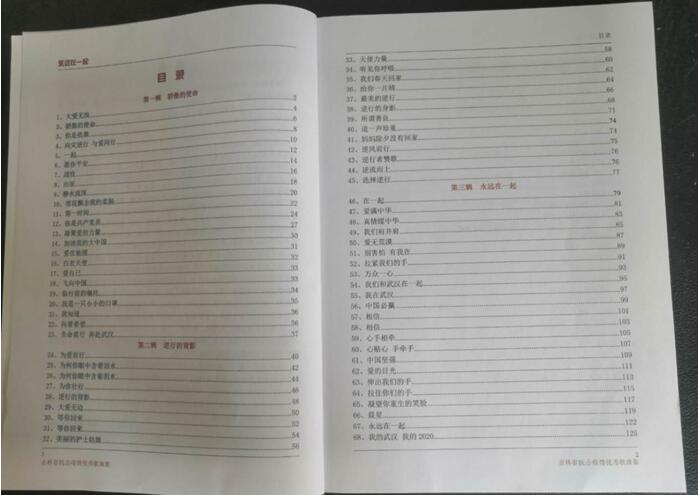 紧靠在一起
目 录
第一辑 骄傲的使命
1、大爱无疆 2
2、骄傲的使命 4
3、你是依靠 6
4、向灾逆行 与爱同行 8
5、一起 10
6、愿你平安 12
7、战疫 14
8、出征 16
9、静水流深 18
10、雪花飘去我的柔肠 20
11、第一时间 22
12、你是共产党员 24
13、最美爱的力量 27
14、加油我的大中国 30
15、爱在驰援 31
16、白衣天使 32
17、爱自己 33
18、飞向中国 34
19、临行前的嘱托
20、我是一只小小的口罩 35
21、我知道 36
22、向着希望 36
23、生命前行 奔赴武汉 37
第二辑 逆行的背影
24、为爱前行 40
25、为何你眼中含着泪水 42
26、为何你眼中含着泪水 44
27、为你壮行 46
28、逆行的背影 48
29、大爱无边 50
30、等你回来 52
31、等你回来 54
32、美丽的护士姑娘 56
1
吉林省抗击疫情优秀歌曲集
目录
33、天使力量 58
34、听见你呼吸 60
35、我们春天回家 62
36、给你一片晴 64
37、最美的逆行 66
38、逆行的背影 68
39、所谓善良 71
40、道一声珍重 74
41、妈妈除夕没有回家 74
42、逆风前行 75
43、逆行者赞歌 76
44、逆流而上 76
45、选择逆行 77
第三辑 永远在一起
46、在一起 79
47、爱满中华 81
48、真情暖中华 83
49、我们肩并肩 85
50、爱无荒漠 87
51、别害怕 有我在 89
52、拉紧我们的手 91
53、万众一心 93
54、我们和武汉在一起 95
55、我在武汉 97
56、中国必赢 99
57、相信 101
58、相信 103
59、心手相牵 105
60、心贴心 手牵手 107
61、中国坚强 109
62、爱的目光 111
63、伸出我们的手 113
64、拉住你们的手 115
65、凝望你重生的笑脸 117
66、晨星 119
67、永远在一起 122
68、我的武汉 我的2020 125
2
吉林省抗击疫情优秀歌曲集